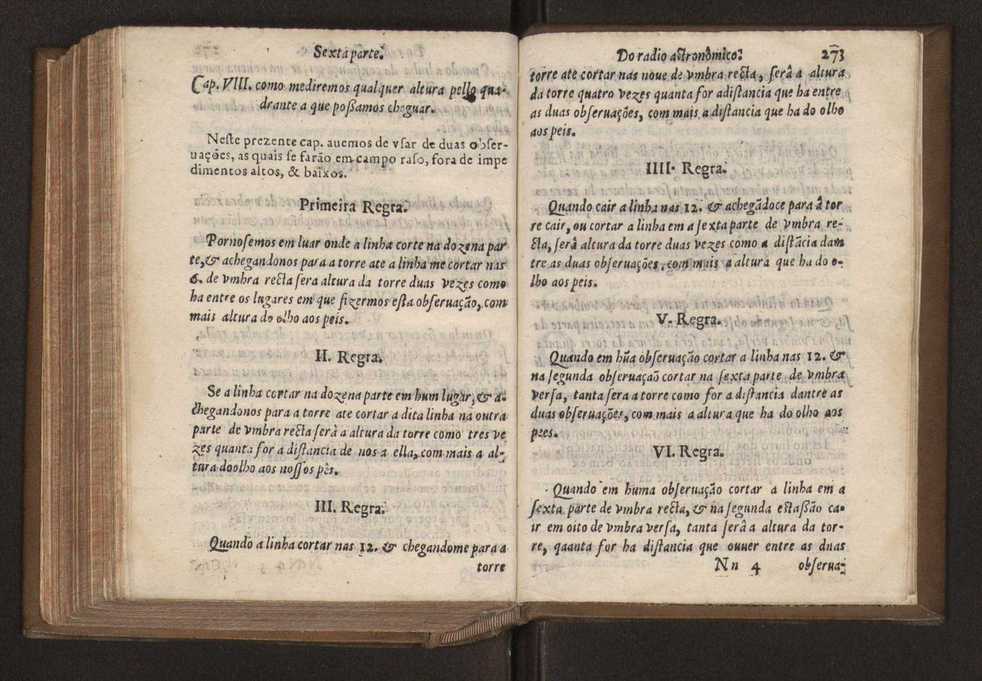 Sexta parte.
Cap. VIII. como mediremos qualquer altura pello qua-
drante a que poßamos cheguar.
Neste prezente cap. auemos de vsar de duas obser-
uações, as quais se farão em campo raso, fora de impe
dimentos altos, & baixos.
Primeira Regra.
Pornosemos em luar onde a linha corte na dozena par
te, & achegandonos para a torre ate a linha me cortar nas
6. de vmbra recta sera altura da torre duas vezes como
ha entre os lugares em que fizermos esta obseruação, com
mais altura do olho aos peis.
II. Regra.
Se a linha cortar na dozena parte em hum lugar, & a-
chegandonos para a torre ate cortar a dita linha na outra
parte de vmbra recta serâ a altura da torre como tres ve
zes quanta for a distancia de nos a ella, com mais a al-
tura doolho aos nossos pês.
III. Regra.
Quando a linha cortar nas 12. & chegandome para a
torre
Do radio astronômico.
273
torre ate cortar nas noue de vmbra recta, serâ a altura
da torre quatro vezes quanta for adistancia que ha entre
as duas obseruações, com mais a distancia que ha do olho
aos peis.
IIII. Regra.
Quando cair a linha nas 12. & achegãdoce para â tor
re cair, ou cortar a linha em a sexta parte de vmbra re-
cta, serâ altura da torre duas vezes como a distãcia dam
tre as duas obseruações, com mais a altura que ha do o-
lho aos peis.
V. Regra.
Quando em hũa obseruação cortar a linha nas 12. &
na segunda obseruação cortar na sexta parte de vmbra
versa, tanta serâ a torre como for a distancia dantre as
duas obseruações, com mais a altura que ha do olho aos
pees.
VI. Regra.
Quando em huma obseruação cortar a linha em a
sexta parte de vmbra recta, & na segunda estassão ca-
ir em oito de vmbra versa, tanta serâ a altura da tor-
re, qaanta for ha distancia que ouuer entre as duas
Nn 4
obserua-